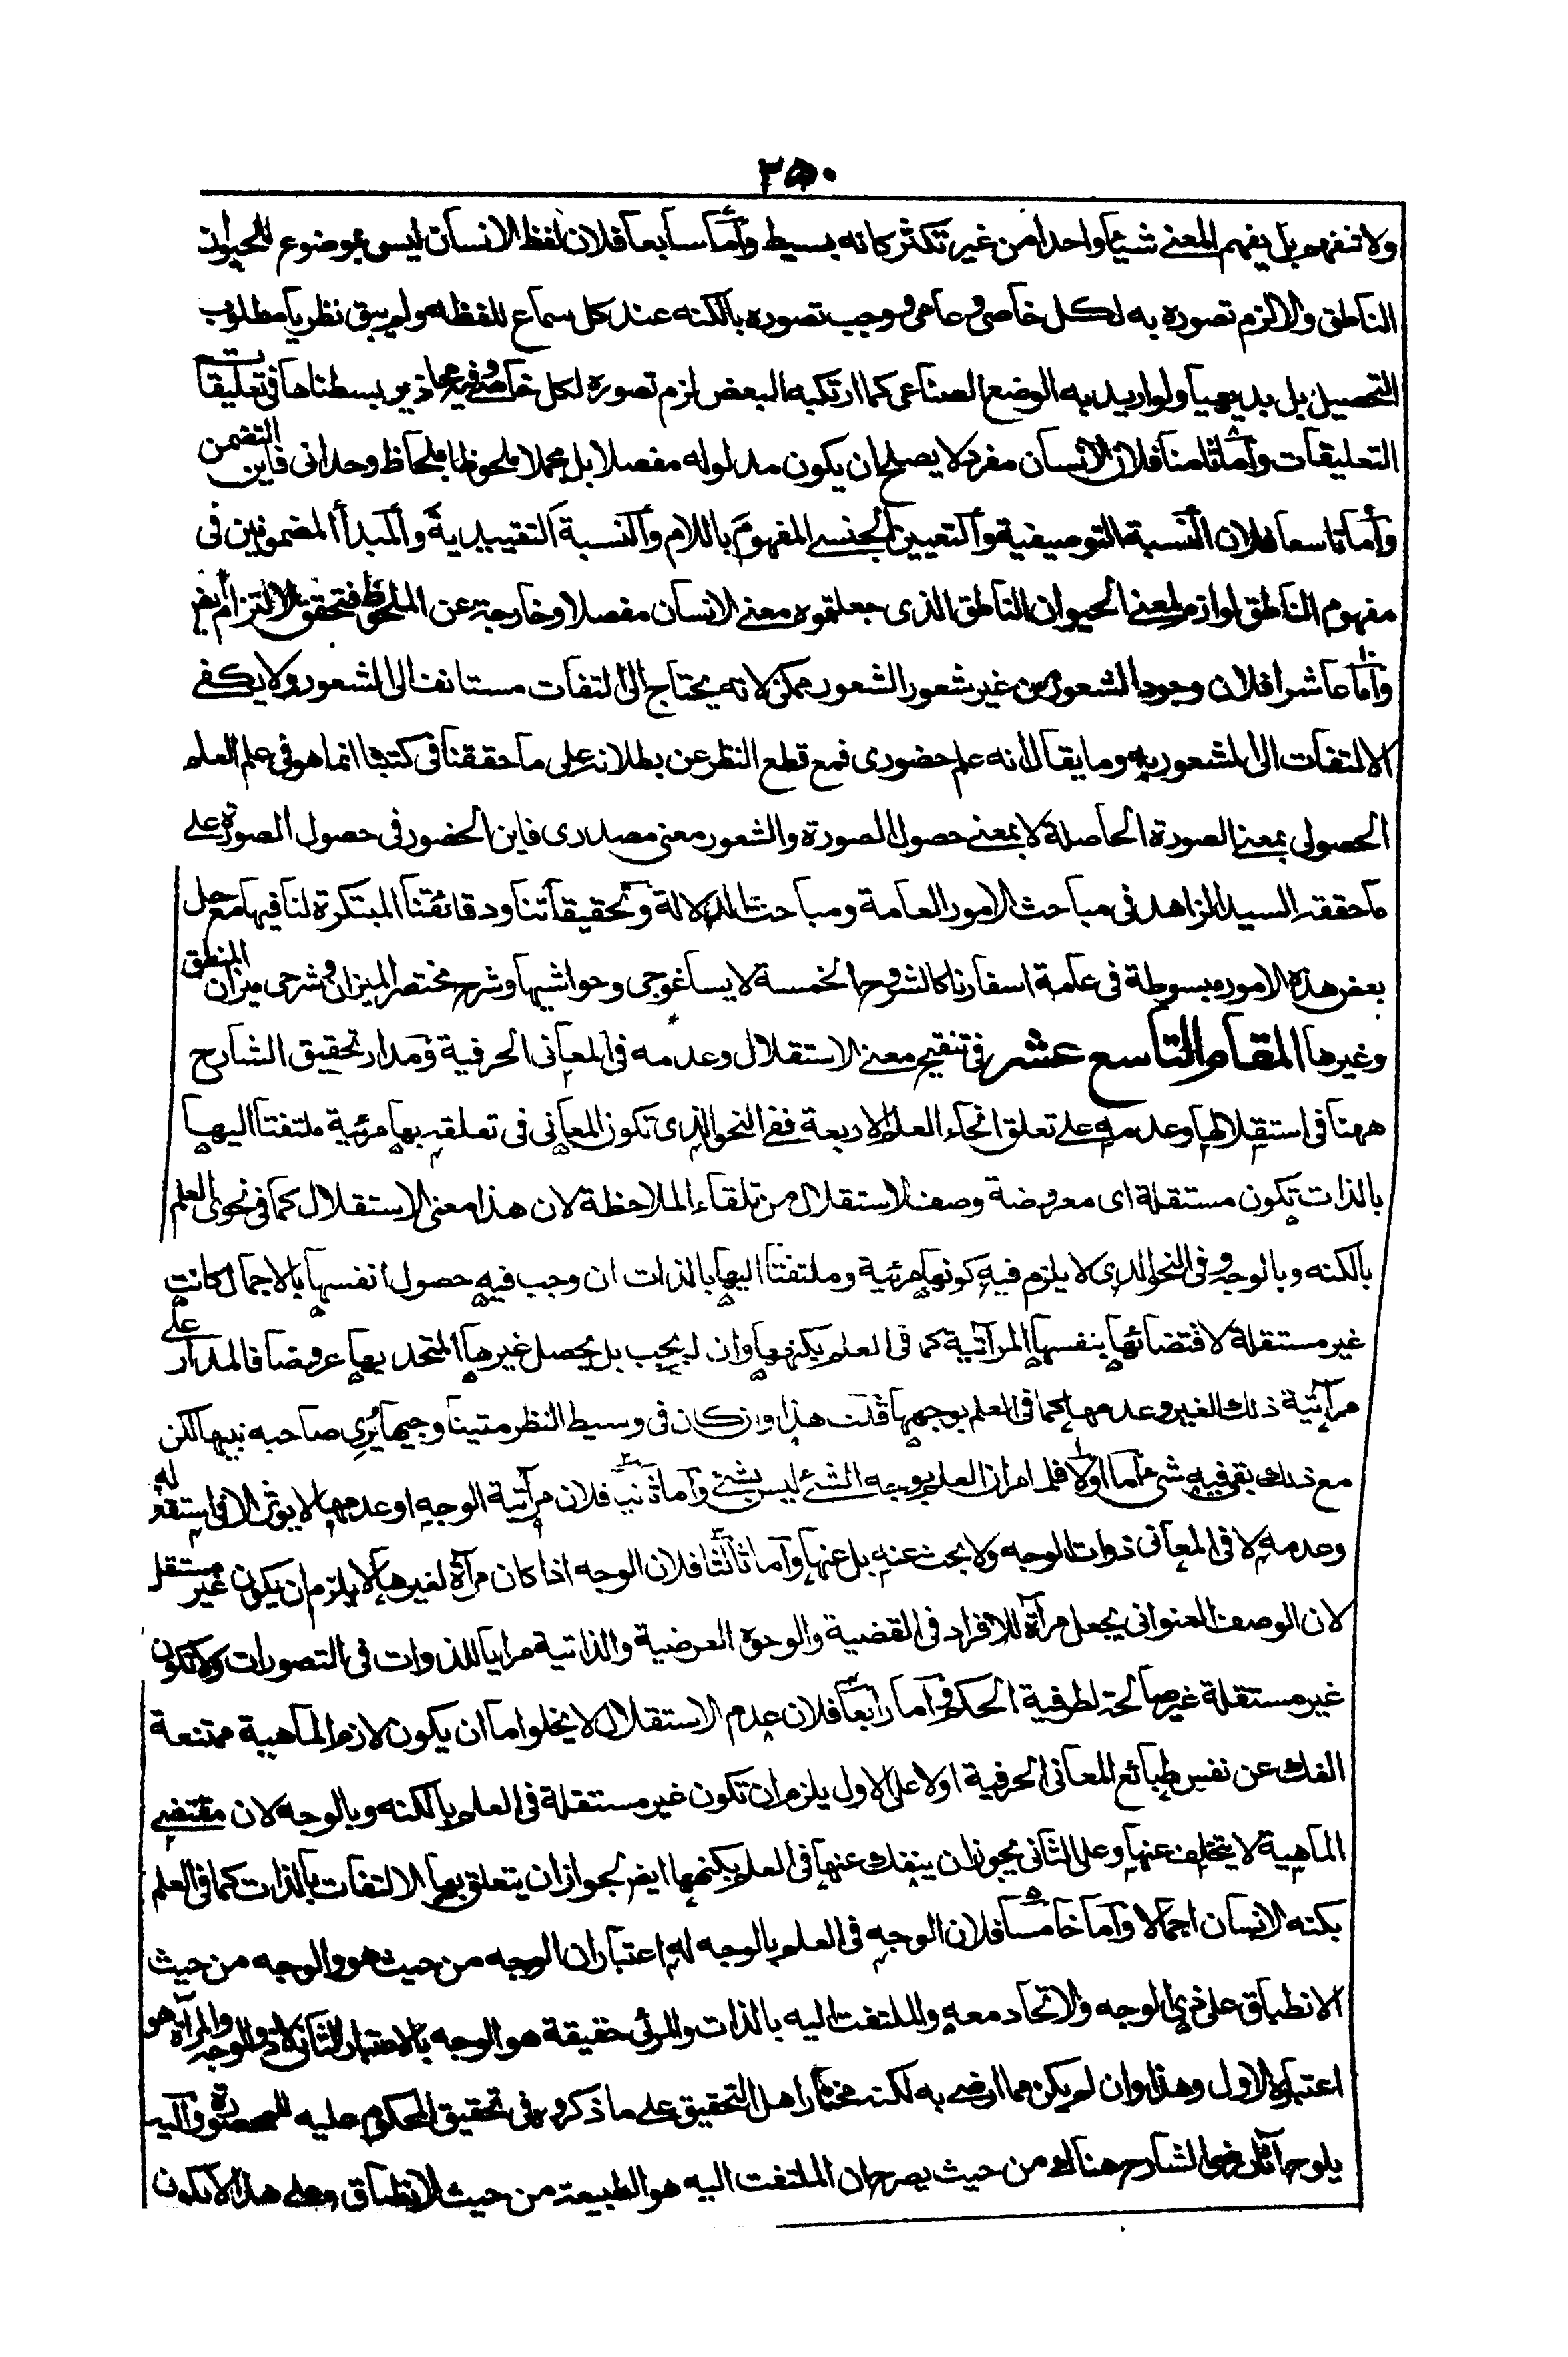 ٣٥٠
ولا نفهم بل يفهم المعنى شيئا واحدا من غير تكثر كانه بسيط وأما سابعا فلان لفظ الانسان ليس بموضوع للحيوان
الناطق والا لزم تصوره به لكل خاصى وعامى ووجب تصوره بالكنه عند كل سماع للفظه ولم يبق نظريا مطلوب
التحصيل بل بديهيا ولو اريد به الوضع الصناعى كما ارتكبه البعض لزم تصوره لكل خاصى وفيه محاذير بسطناها فى تعليقات
التعليقات وأما ثامنا فلان الانسان مفرد لا يصلح ان يكون مدلوله مفصلا بل مجملا ملحوظا بلحاظ وحدانى فاين التضمن
وأما تاسعا فلان النسبة التوصيفية والتعيين الجنسى المفهوم باللام والنسبة التقييدية والمبدأ المضمونين فى
مفهوم الناطق لوازم لمعنى الحيوان الناطق الذى جعلتموه معنى الانسان مفصلا وخارجة عن الملحوظ فتحقق الالتزام ايض
وأما عاشرا فلان وجود الشعور من غير شعور الشعور ممكن لانه يحتاج الى التفات مستانف الى الشعور ولا يكفى
الالتفات الى المشعور به وما يقال انه علم حضورى فمع قطع النظر عن بطلانه على ما حققنا فى كتبنا انما هو فى علم العلم
الحصولى بمعنى الصورة الحاصلة لا بمعنى حصول الصورة والشعور معنى مصدرى فاين الحضور فى حصول الصورة على
ما حققه السيد الزاهد فى مباحث الامور العامة ومباحث الدلالة وتحقيقاتنا ودقائقنا المبتكرة لنا فيها مع حل
بعض هذه الامور مبسوطة فى عامة اسفارنا كالشروح الخمسة لايساغوجى وحواشيها وشرح مختصر الميزان وشرحى ميزان المنطق
وغيرها المقام التاسع عشر فى تنقيح معنى الاستقلال وعدمه فى المعانى الحرفية ومدار تحقيق الشارح
ههنا فى استقلالها وعدمه على تعلق انحاء العلم الاربعة ففى النحو الذى تكون المعانى فى تعلقه بها مرئية ملتفتا اليها
بالذات تكون مستقلة اى معروضة وصف الاستقلال من تلقاء الملاحظة لان هذا معنى الاستقلال كما فى نحوى العلم
بالكنه وبالوجه وفى النحو الذى لا يلزم فيه كونها مرئية وملتفتا اليها بالذات ان وجب فيه حصول انفسها بالاجمال كانت
غير مستقلة لاقتضائها بنفسها المرآتية كما فى العلم بكنهها وان لم يجب بل يحصل غيرها المتحد بها عروضا فالمدار على
مرآتية ذلك الغير وعدمها كما فى العلم بوجهها قلت هذا وان كان فى وسيط النظر متينا وجيها يُرى صاحبه نبيها لكن
مع ذلك بقى فيه شئ أما اولا فلما مر ان العلم بوجه الشئ ليس بشئ وأما ثانيا فلان مرآتية الوجه او عدمها لا يوثر الا فى استقلاله
وعدمه لا فى المعانى ذوات الوجه ولا بحث عنه بل عنها وأما ثالثا فلان الوجه اذا كان مرآة لغيرها لا يلزم ان يكون غير مستقل
لان الوصف العنوانى يجعل مرآة للافراد فى القضية والوجوه العرضية والذاتية مرايا للذوات فى التصورات ولا تكون
غير مستقلة غير صالحة لطرفية الحكم وأما رابعا فلان عدم الاستقلال لا يخلو اما ان يكون لازم الماهية ممتنعة
الفك عن نفس طبائع المعانى الحرفية اولا على الاول يلزم ان تكون غير مستقلة فى العلم بالكنه وبالوجه لان مقتضى
الماهية لا يتخلف عنها وعلى الثانى يجوز ان ينفك عنها فى العلم بكنهها ايض لجواز ان يتعلق بها الالتفات بالذات كما فى العلم
بكنه الانسان اجمالا وأما خامسا فلان الوجه فى العلم بالوجه له اعتباران الوجه من حيث هو والوجه من حيث
الانطباق على ذى الوجه والاتحاد معه والملتفت اليه بالذات والمرئى حقيقة هو الوجه بالاعتبار الثانى والمرآة هو
اعتباره الاول وهذا وان لم يكن مما ارضى به لكنه مختار اهل التحقيق على ما ذكروه فى تحقيق المحكوم عليه للمحصورة واليه
يلوح آثار رضى الشارح هنالك من حيث يصرح ان الملتفت اليه هو الطبيعة من حيث الانطباق وعلى هذا لا يكون